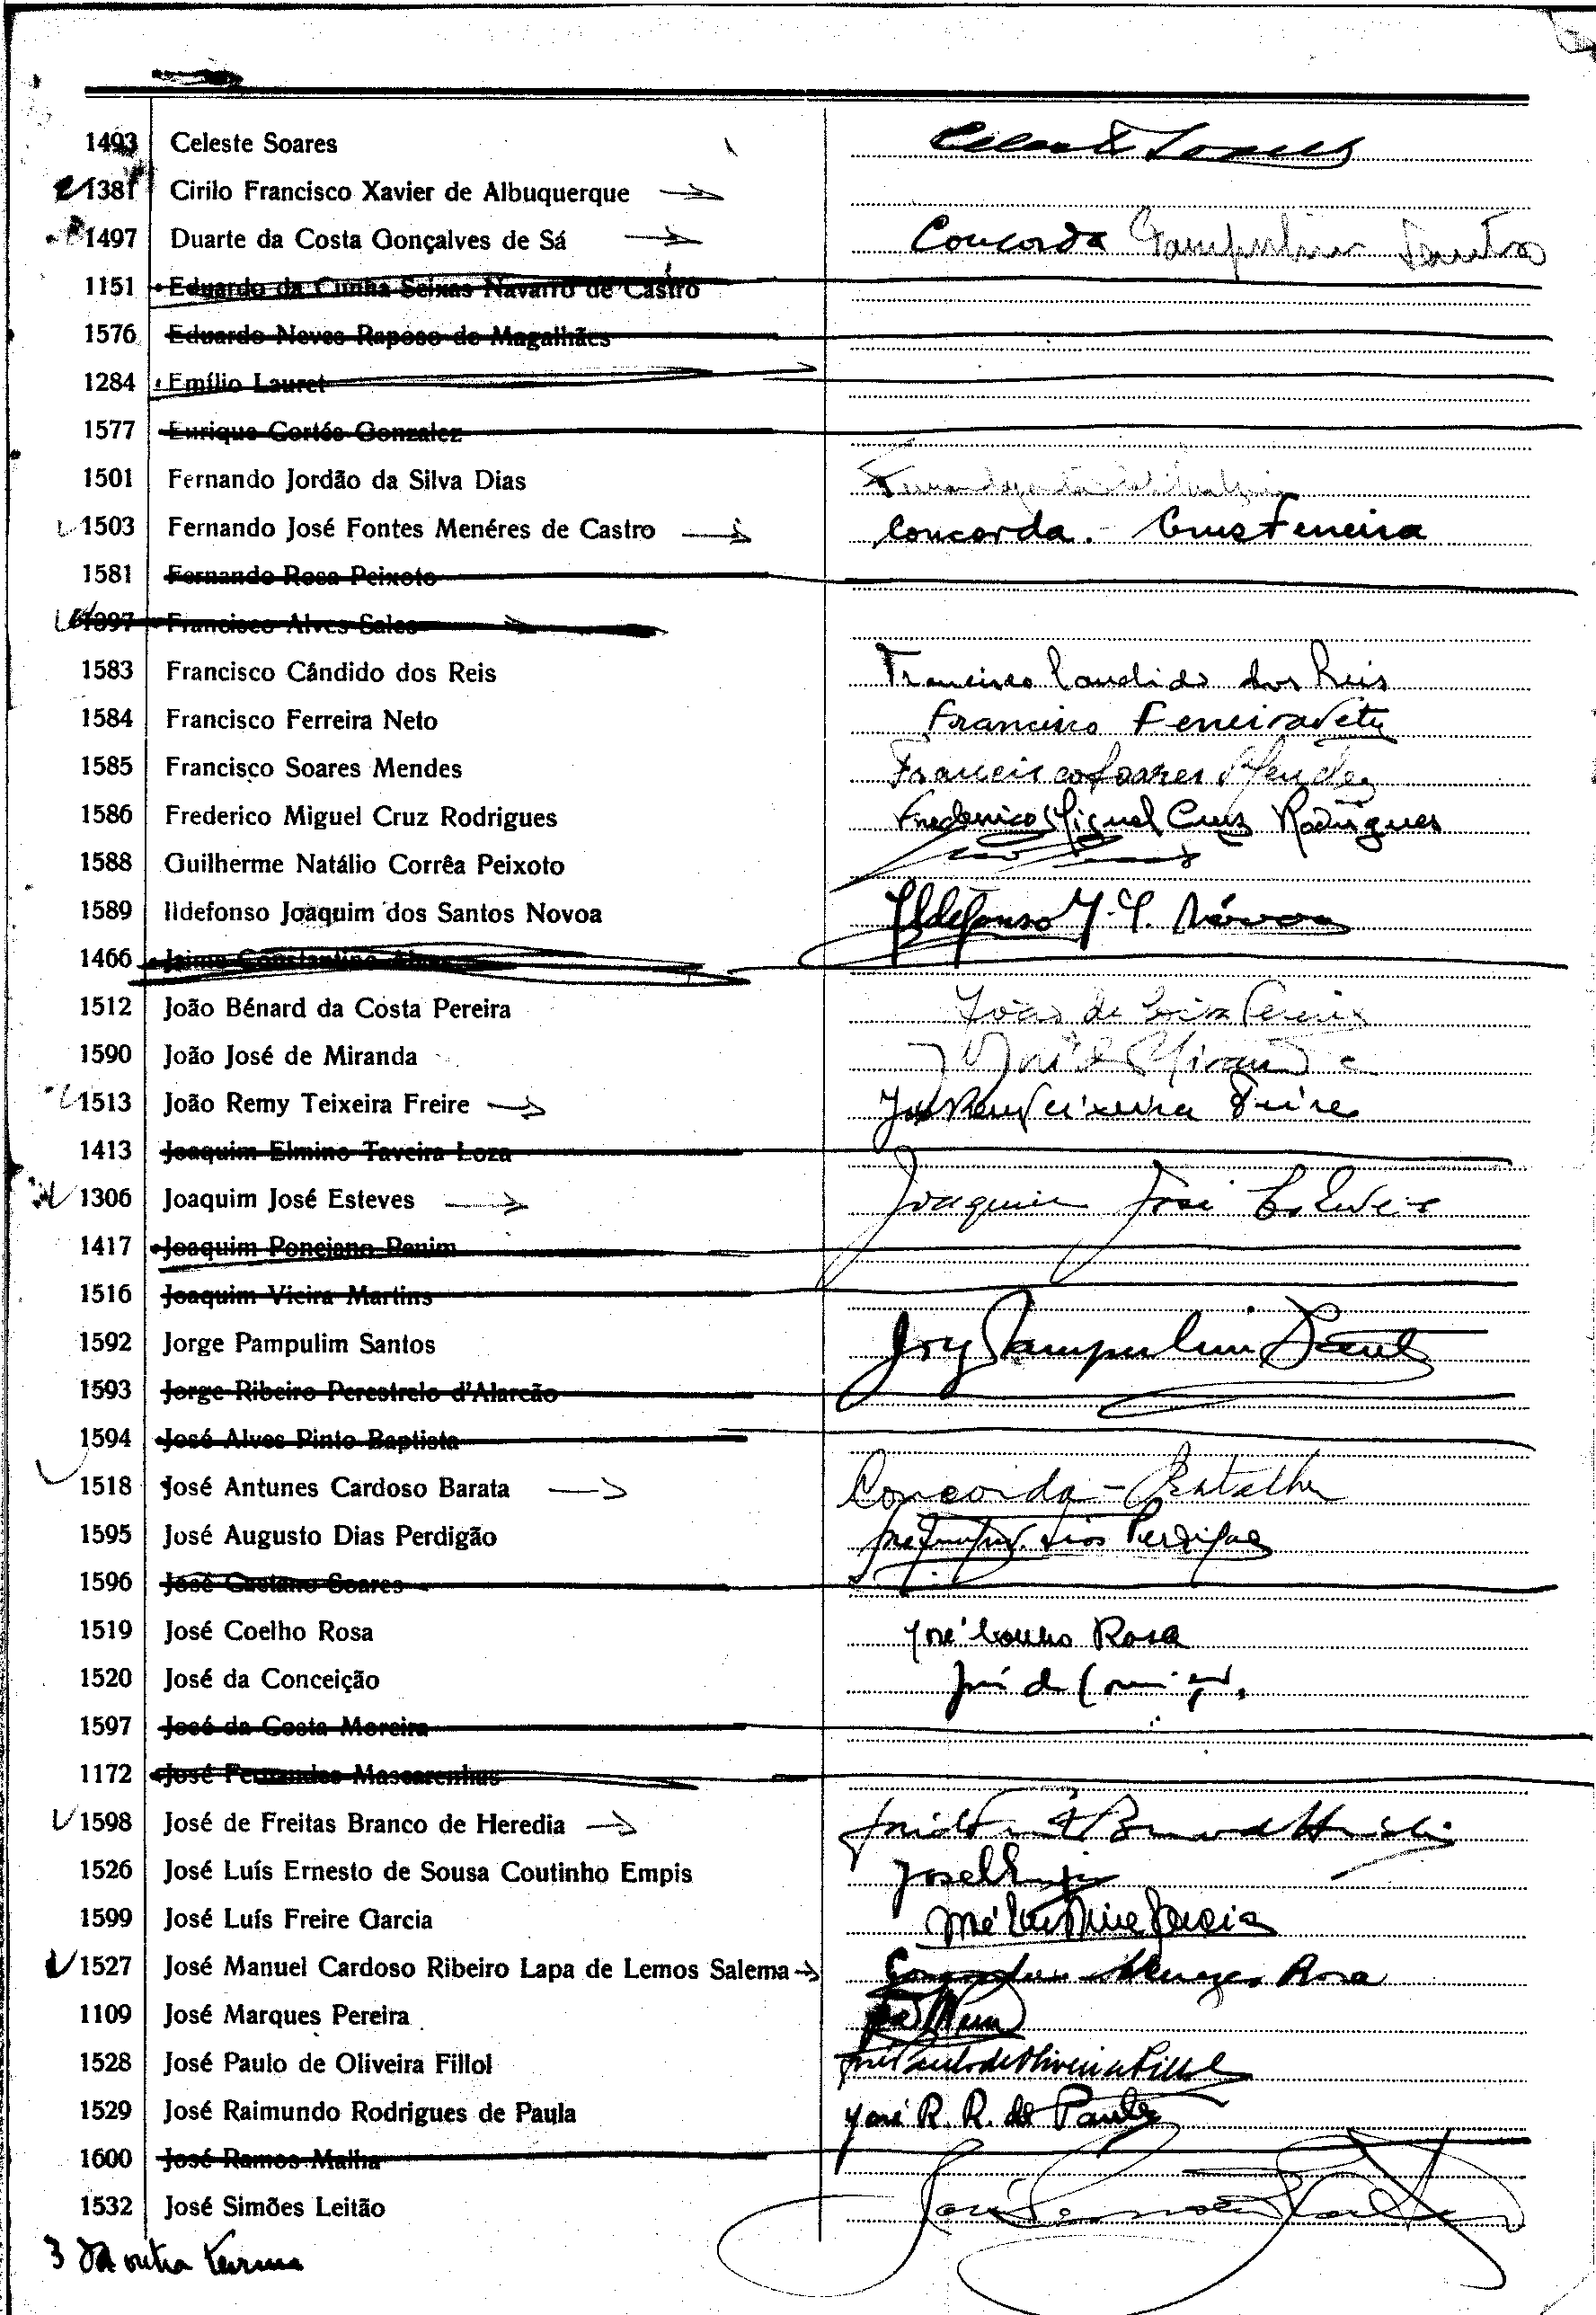 1493 Celeste Soares Celeste Soares
1381 Cirilo Francisco Xavier de Albuquerque
1497 Duarte da Costa Gonçalves de Sá Concorda Pampulim Santos
1151 Eduardo da Cunha Seixas Navarro de Castro
1576 Eduardo Neves Raposo de Magalhães
1284 Emílio Lauret
1577 Enrique Cortés Gonzalez
1501 Fernando Jordão da Silva Dias
1503 Fernando José Fontes Menéres de Castro Concorda. - Cruz Ferreira
1581 Fernando Rosa Peixoto
1397 Francisco Alves Sales
1583 Francisco Cândido dos Reis Francisco Candido dos Reis
1584 Francisco Ferreira Neto Francisco Ferreira Neto
1585 Francisco Soares Mendes Francisco Soares Mendes
1586 Frederico Miguel Cruz Rodrigues Frederico Miguel Cruz Rodrigues
1588 Guilherme Natálio Corrêa Peixoto
1589 Ildefonso Joaquim dos Santos Novoa Ildefonso J. S. Nóvoa
1466 Jaime Constantino Alves
1512 João Bénard da Costa Pereira João da Costa Pereira
1590 João José de Miranda J José de Miranda
1513 João Remy Teixeira Freire João Remy Teixeira Freire
1413 Joaquim Elmino Taveira Loza
1306 Joaquim José Esteves Joaquim José Esteves
1417 Joaquim Ponciano Panim
1516 Joaquim Vieira Martins
1592 Jorge Pampulim Santos Jorge Pampulim Santos
1593 Jorge Ribeiro Perestrelo d'Alarcão
1594 José Alves Pinto Baptista
1518 José Antunes Cardoso Barata Concorda -
1595 José Augusto Dias Perdigão José Augusto Dias Perdigão
1596 José Caetano Soares
1519 José Coelho Rosa José Coelho Rosa
1520 José da Conceição José da Conceição
1597 José da Costa Moreira
1172 José Fernandes Mascarenhas
1598 José de Freitas Branco de Heredia
1526 José Luís Ernesto de Sousa Coutinho Empis
1599 José Luís Freire Garcia José Luis Freire Garcia
1527 José Manuel Cardoso Ribeiro Lapa de Lemos Salema Rosa
1109 José Marques Pereira
1528 José Paulo de Oliveira Fillol José Paulo de Oliveira Fillol
1529 José Raimundo Rodrigues de Paula José R. R. de Paula
1600 José Ramos Malha
1532 José Simões Leitão José Simões Leitão
3 da outra turma